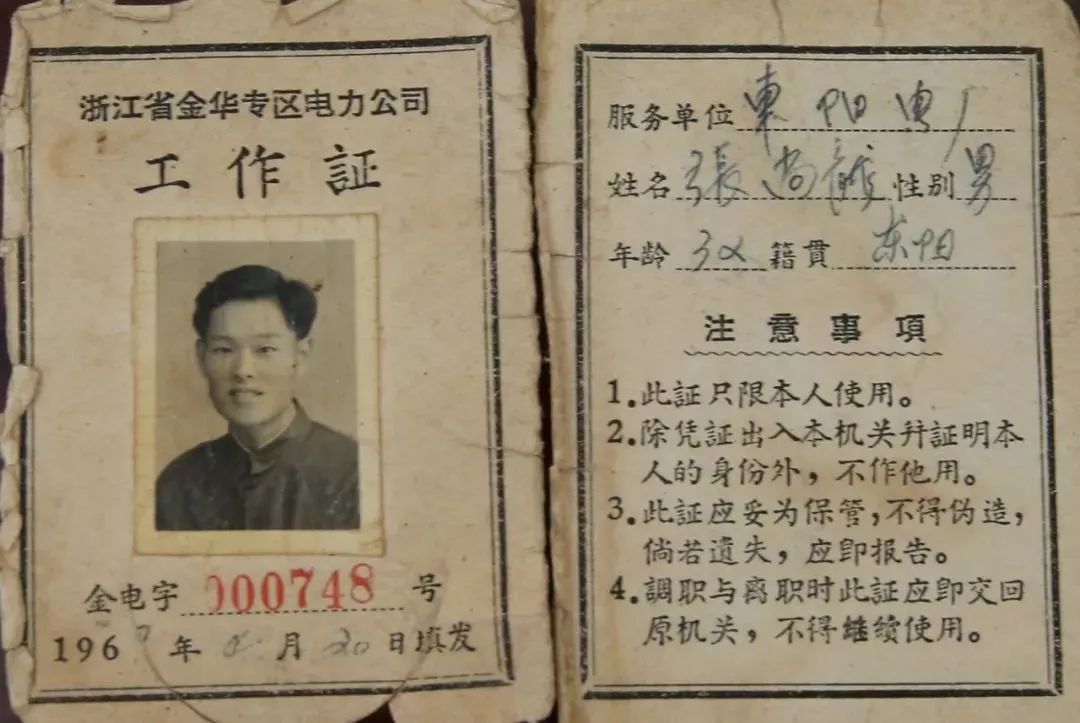 浙江省金华专区电力公司
工作証
金电字 000748 号
196 年 月 20 日填发
服务单位 東阳电厂
姓名 張尚 性别 男
年龄 籍贯 东阳
注意事項
1.此証只限本人使用。
2.除凭証出入本机关幷証明本
人的身份外，不作他用。
3.此証应妥为保管，不得伪造，
倘若遺失，应卽报告。
4.調职与离职时此証应卽交回
原机关，不得継續使用。